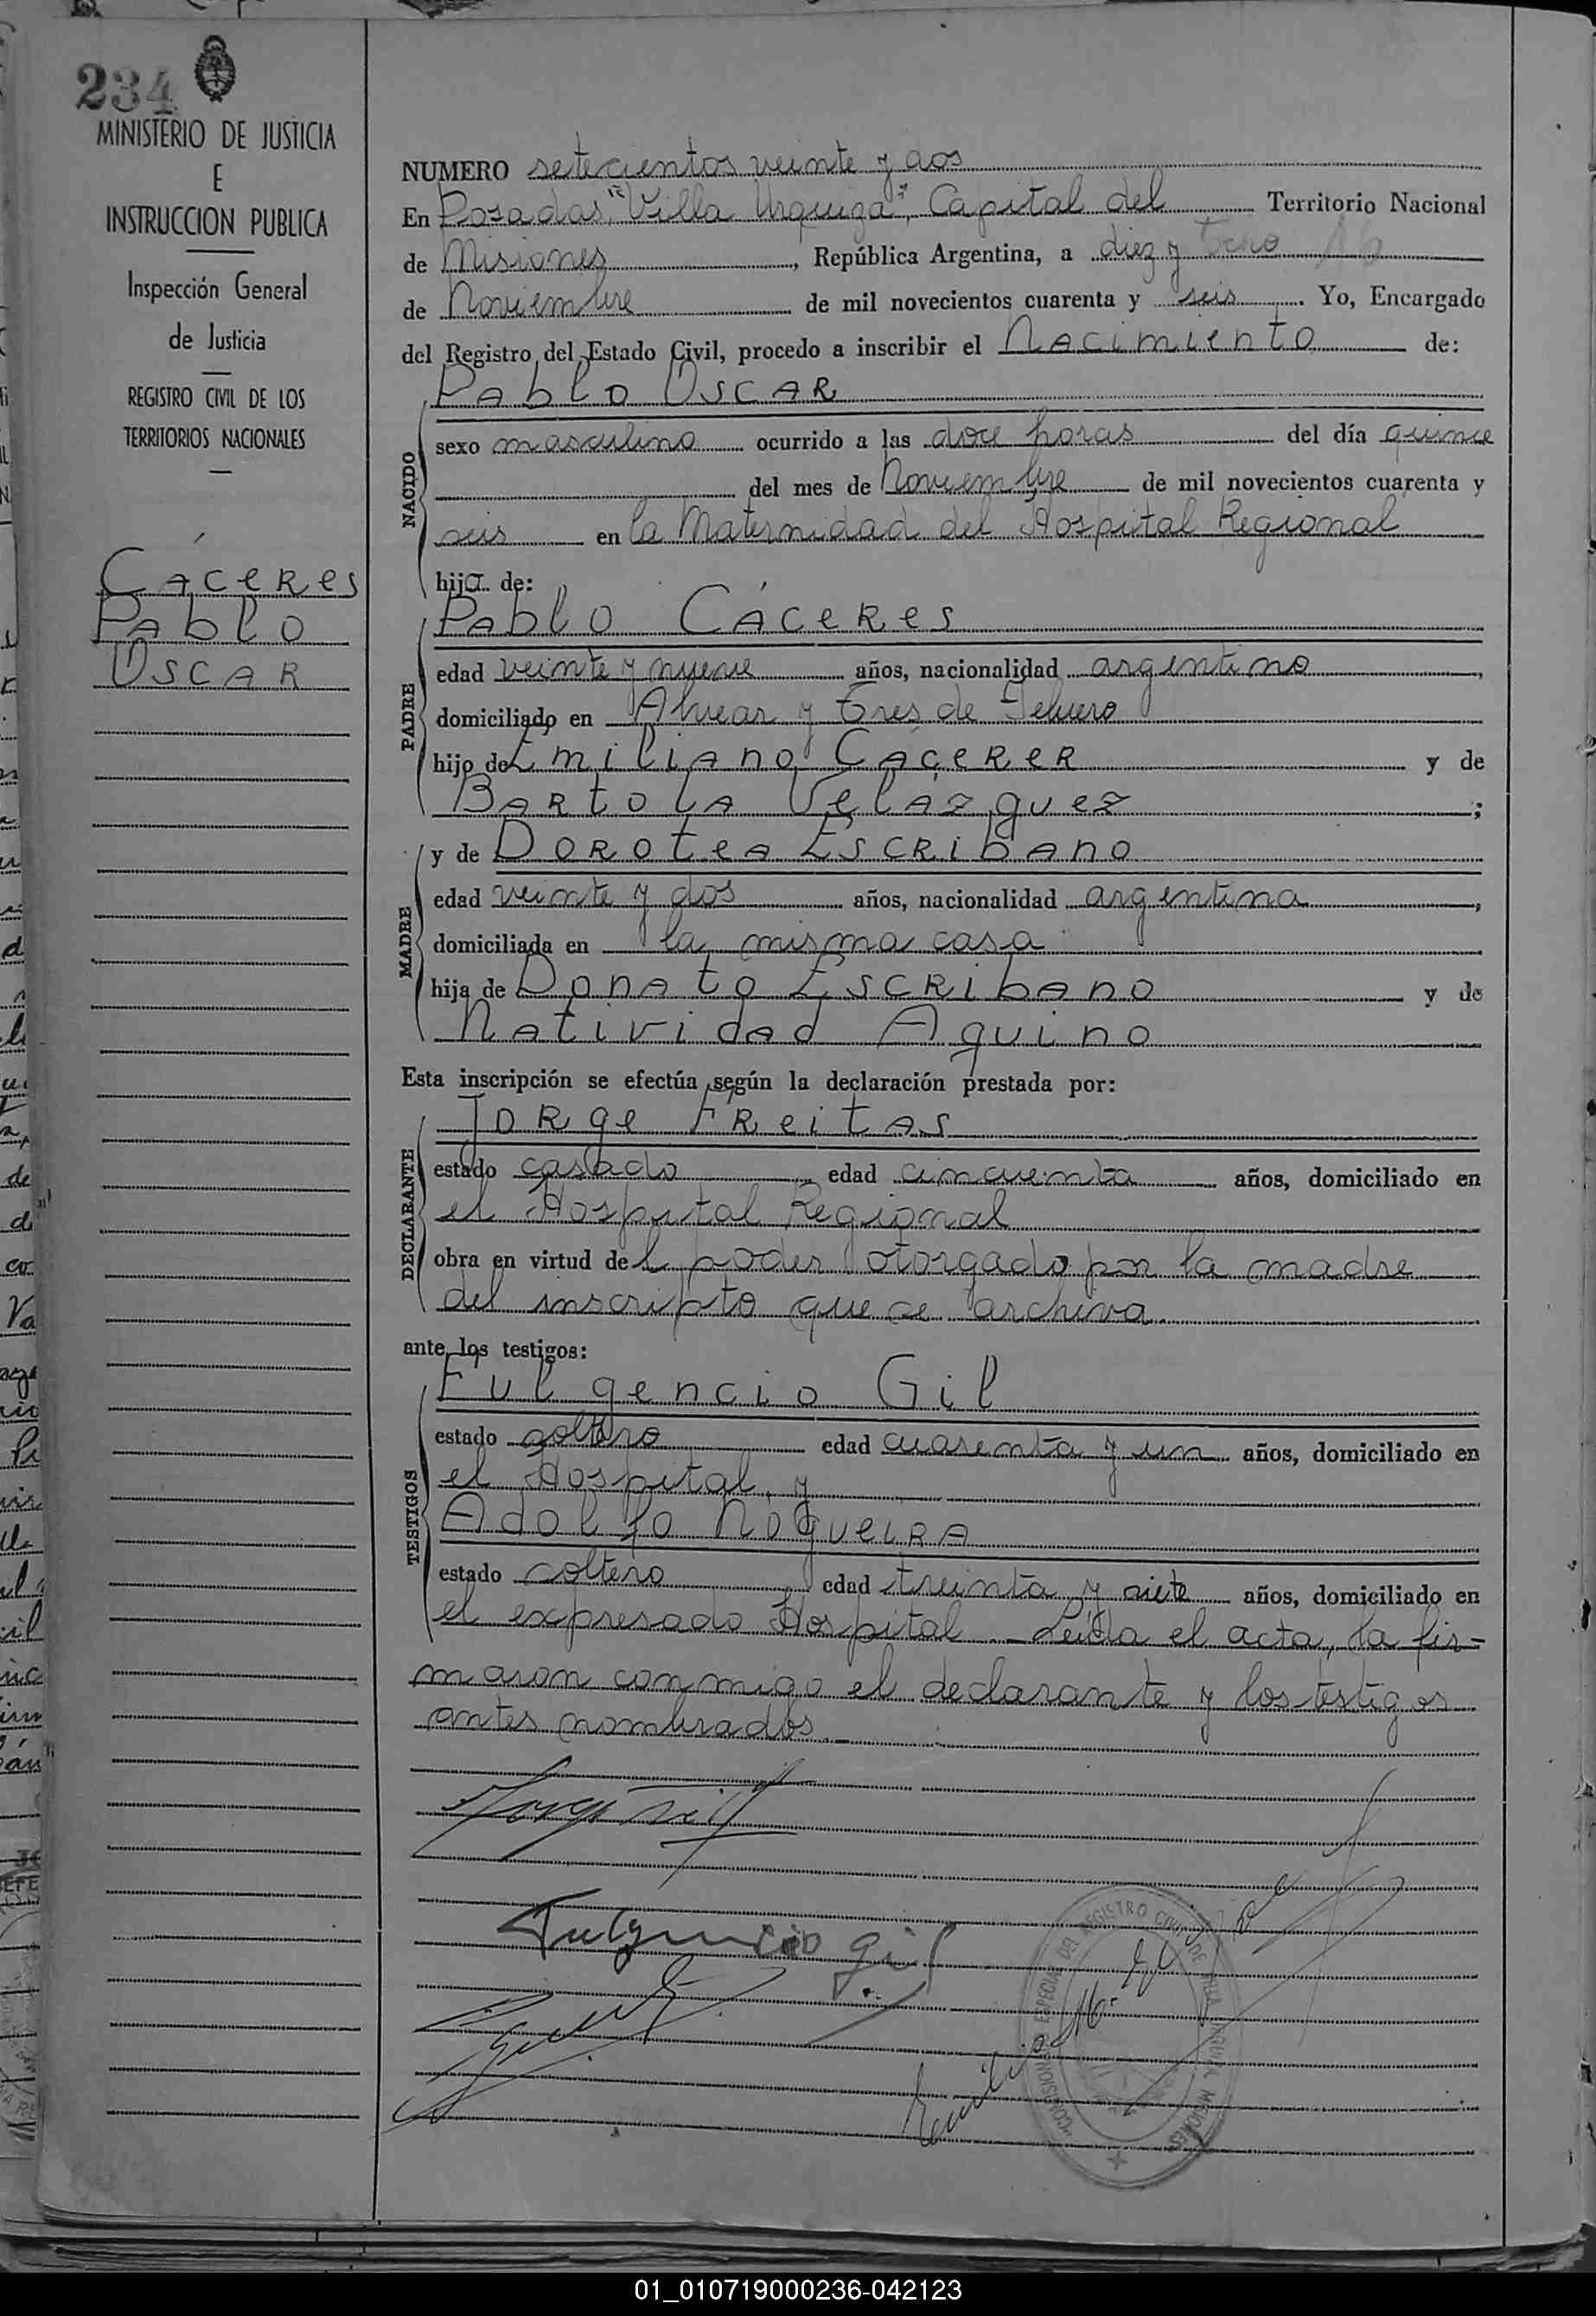 234
MINISTERIO DE JUSTICIA
E
INSTRUCCION PUBLICA
Inspección General
de Justicia
REGISTRO CIVIL DE LOS
TERRITORIOS NACIONALES
Cáceres
Pablo
Oscar
NUMERO setecientos veinte y dos
En Posadas, "Villa Urquiza", Capital del Territorio Nacional
de Misiones, República Argentina, a diez y ocho
de Noviembre de mil novecientos cuarenta y seis. Yo, Encargado
del Registro del Estado Civil, procedo a inscribir el Nacimiento de:
Pablo Oscar
NACIDO
sexo masculino ocurrido a las doce horas del día quince
del mes de Noviembre de mil novecientos cuarenta y
seis en la Maternidad del Hospital Regional
hijo de:
PADRE
Pablo Cáceres
edad veinte y nueve años, nacionalidad argentino,
domiciliado en Alvear y Tres de Febrero
hijo de Emiliano Cácerer y de
Bartola Velázquez;
MADRE
y de Dorotea Escribano
edad veinte y dos años, nacionalidad argentina,
domiciliada en la misma casa
hija de Donato Escribano y de
Natividad Aquino
Esta inscripción se efectúa según la declaración prestada por:
DECLARANTE
Jorge Freitas
estado casado edad cincuenta años, domiciliado en
el Hospital Regional
obra en virtud del poder otorgado por la madre
del inscripto que se archiva.
ante los testigos:
TESTIGOS
Fulgencio Gil
estado soltero edad cuarenta y un años, domiciliado en
el Hospital, y
Adolfo Nogueira
estado soltero edad treinta y siete años, domiciliado en
el expresado Hospital. Leída el acta, la fir-
maron conmigo el declarante y los testigos
antes nombrados.
Fulgencio Gil
01_010719000236-042123